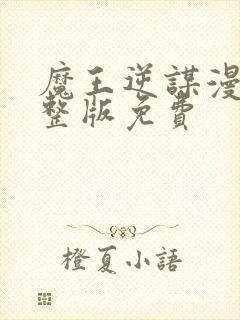 魔王逆謀漫
整版免費
橙夏小語